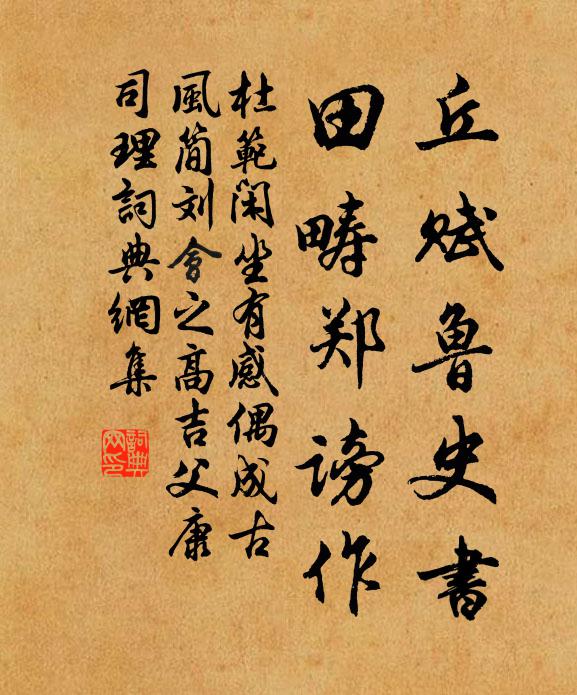 丘赋鲁史書
田畴郑谤作
杜範閑坐有感偶成古
風簡刘會之高吉父康
司理詞典網集
詞典網印